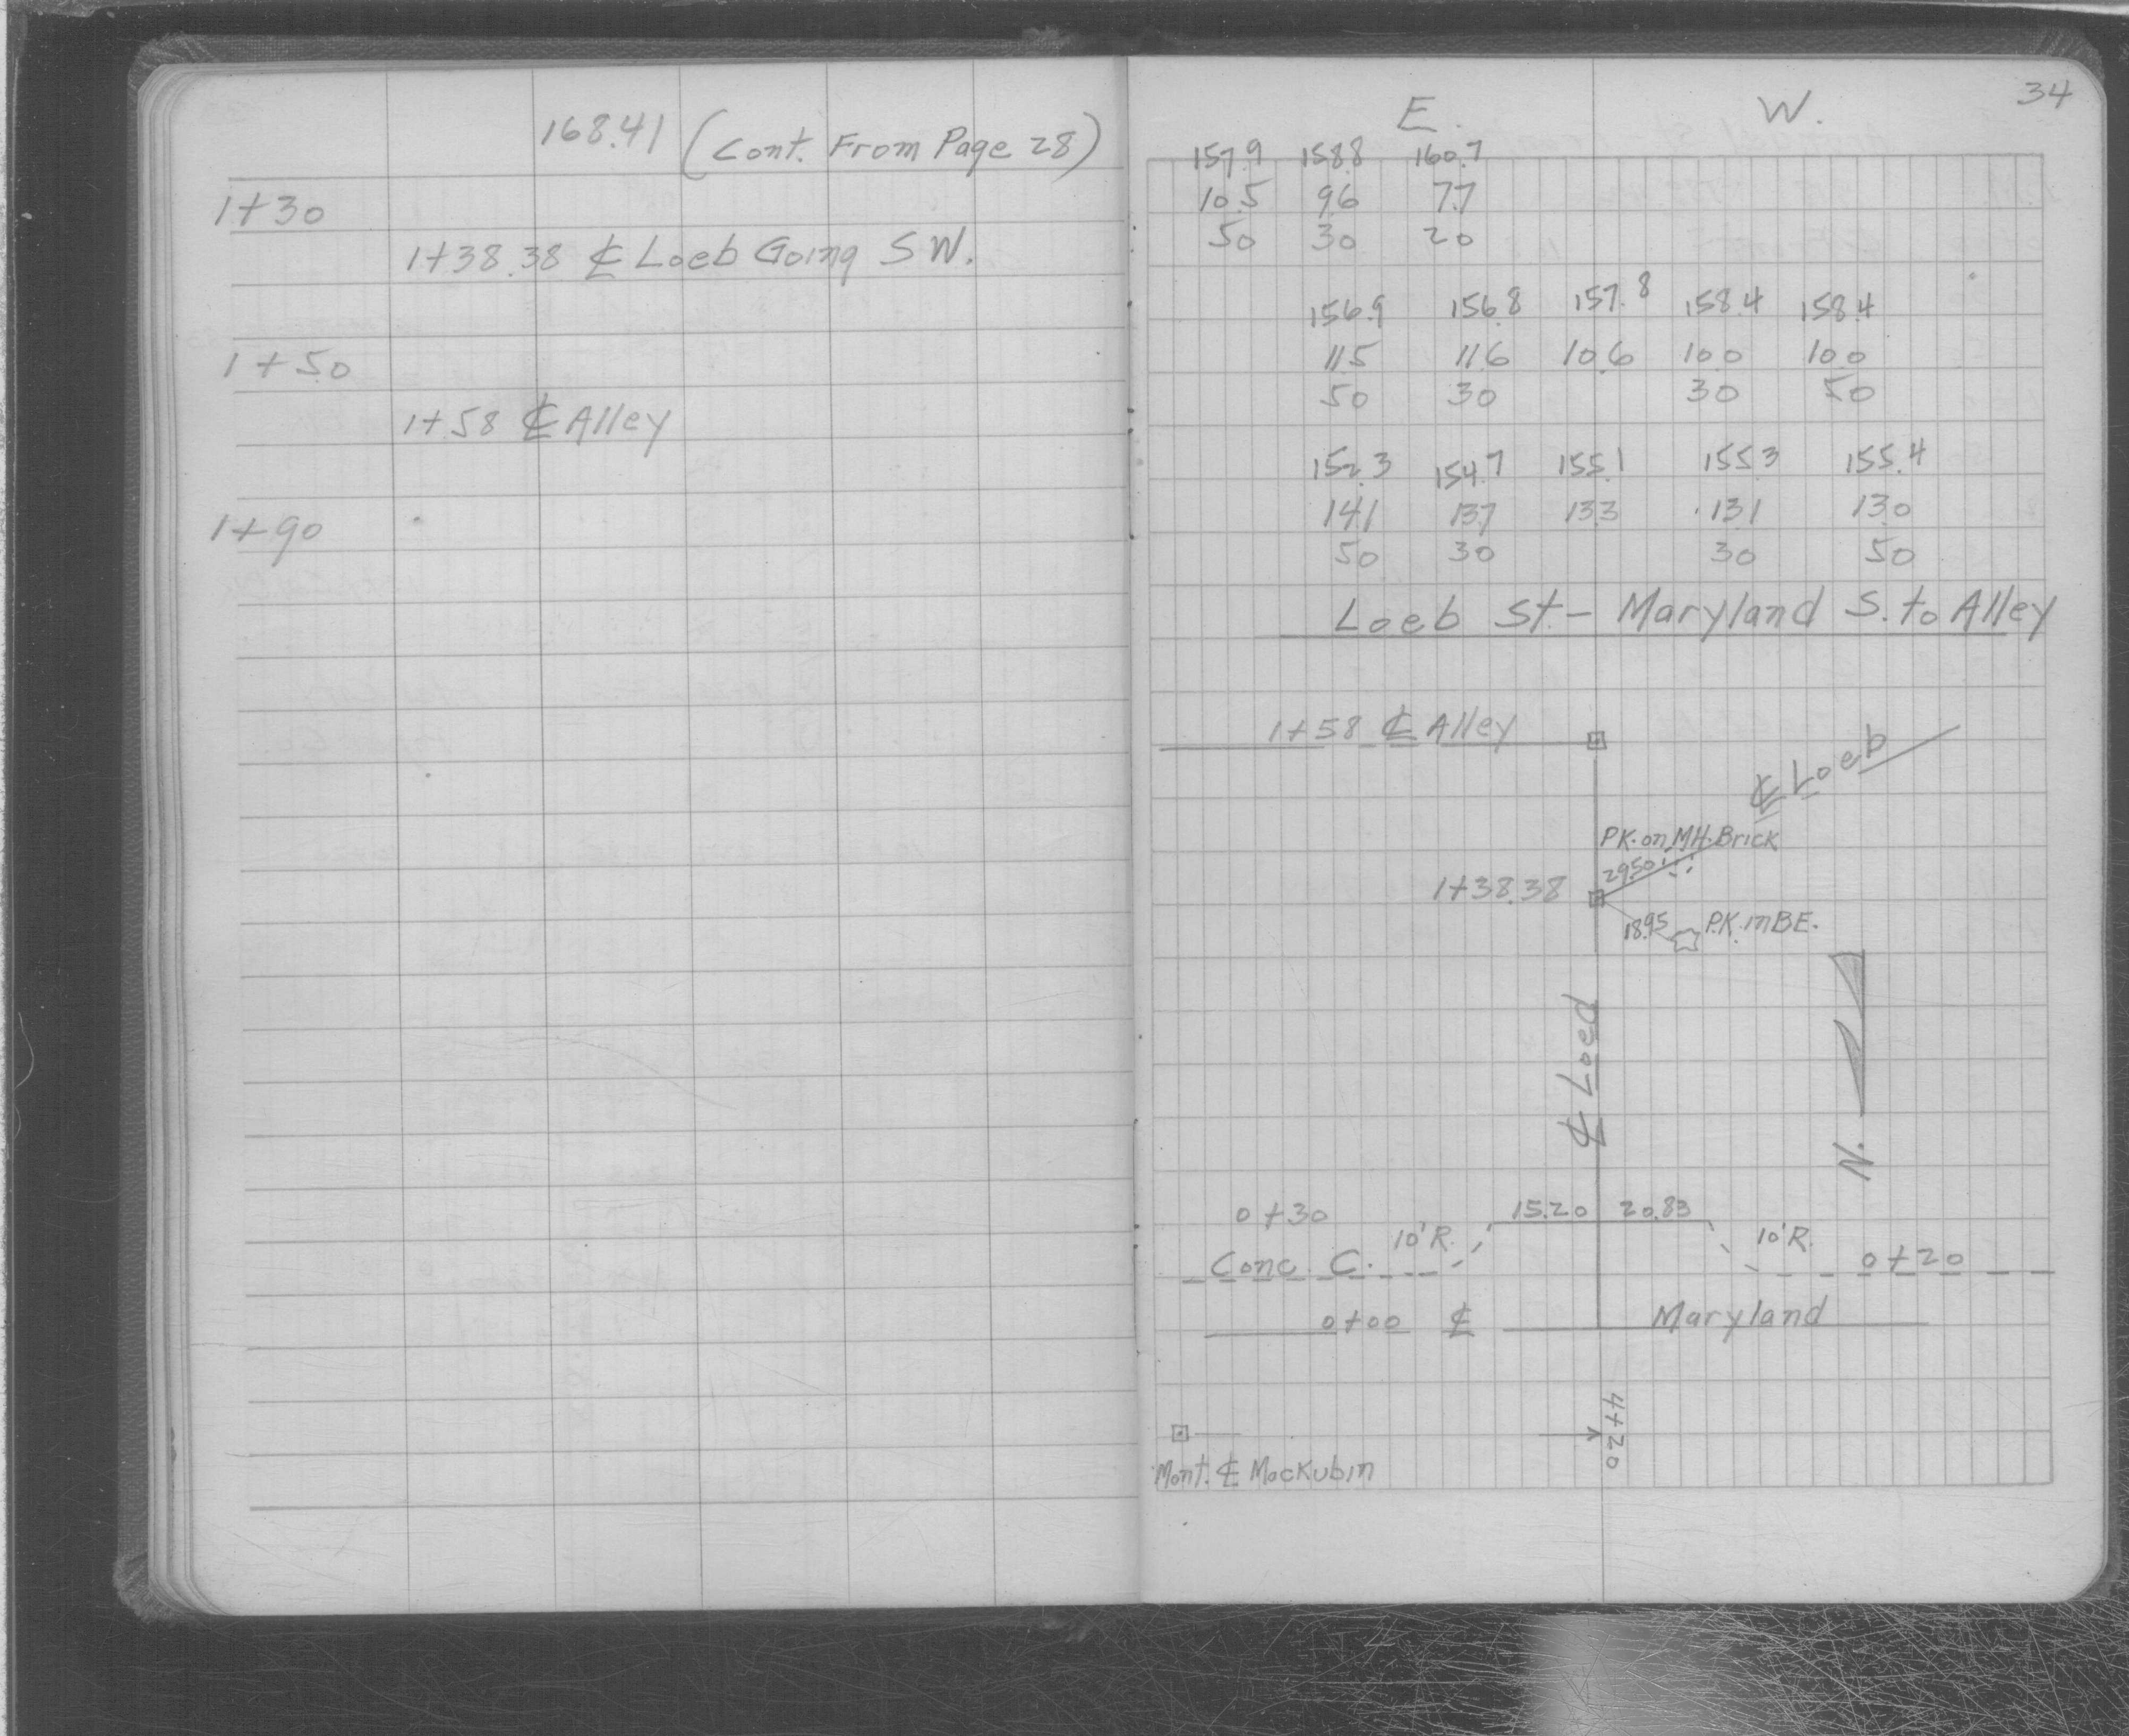 168.41 (Cont. From Page 28)
1+30
1+38.38 ℄ Loeb Going S W.
1+50
1+58 ℄ Alley
1+90
34
E. W.
157.9 158.8 160.7
10.5 9.6 7.7
50 30 20
156.9 156.8 157.8 158.4 158.4
11.5 11.6 10.6 10.0 10.0
50 30 30 50
152.3 154.7 155.1 155.3 155.4
14.1 13.7 13.3 13.1 13.0
50 30 30 50
Loeb St.- Maryland S. to Alley
1+58 ℄ Alley
℄ Loeb
P.K. on M.H. Brick
29.50
1+38.38
18.95 P.K. in B.E.
℄ Loeb
N.
0+30 15.20 20.83
10'R. 10'R.
Conc. C. 0+20
0+00 ℄ Maryland
4+20
Mont. ℄ Mockubin